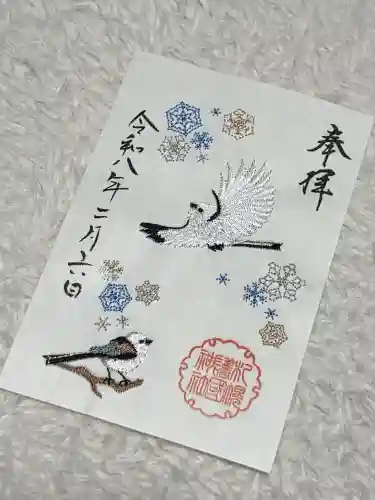 奉拝
令和八年二月六日